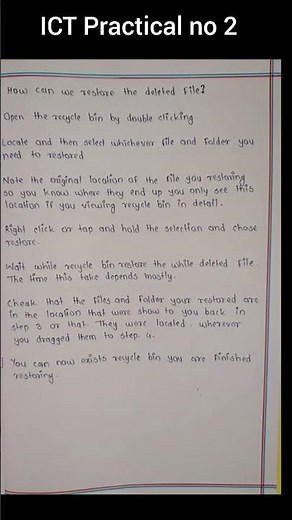 ICT Practical no 2
How can we restore the deleted file?
Open the recycle bin by double clicking
Locate and then select whichever file and folder you
need to restored
Note the original location of the file you restoring
so you know where they end up you only see this
location if you viewing recycle bin in detail.
Right click or tap and hold the selection and chose
restore.
Wait while recycle bin restore the while deleted file.
The time this take depends mostly.
Cheak that the files and folder your restored are
in the location that were show to you back in
step 3 or that They were located wherever
you dragged them to step 4.
You can now exists recycle bin you are finished
restoring.